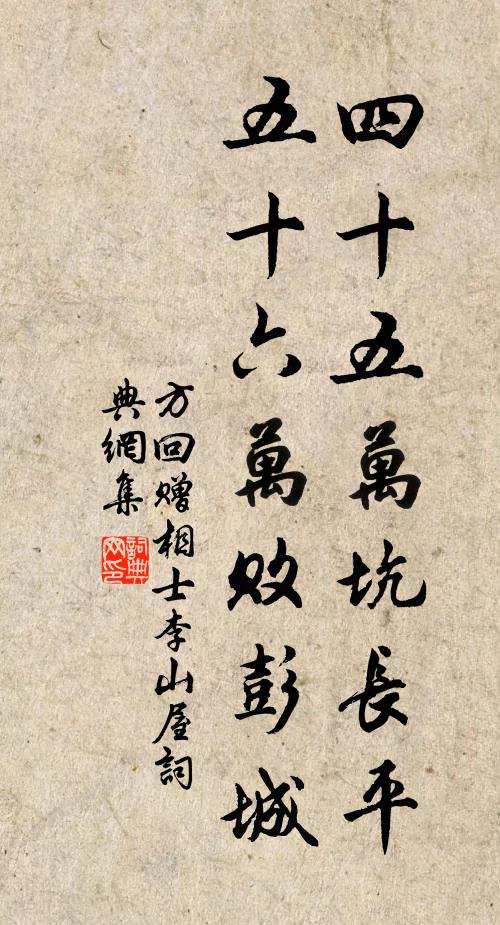 四十五萬坑長平
五十六萬敗彭城
方回贈相士李山屋詞
典網集
詞典
网印